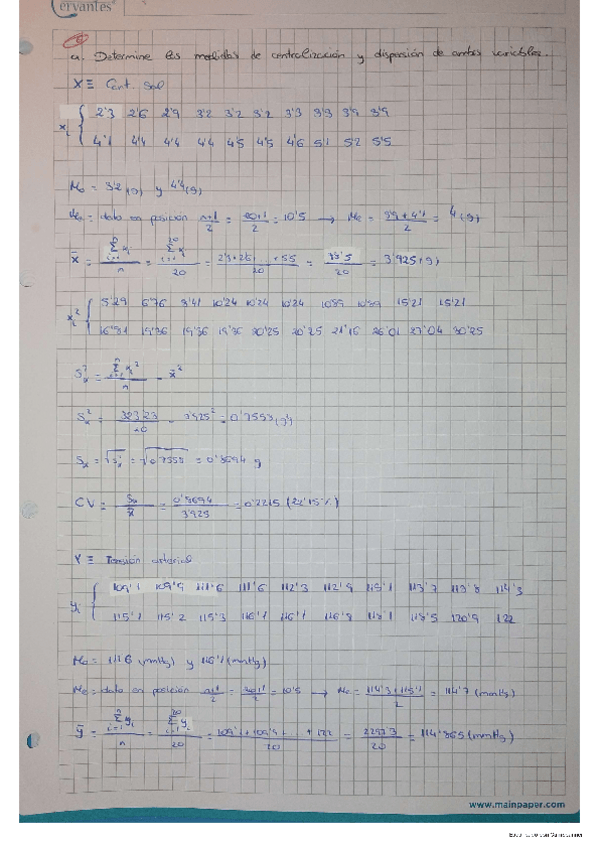 ervantes
a. Determine las medidas de centralización y dispersión de ambas variables.
X ≡ Cant. Sal
xi { 2'3 2'6 2'9 3'2 3'2 3'2 3'3 3'3 3'9 3'9
4'1 4'4 4'4 4'4 4'5 4'5 4'6 5'1 5'2 5'5
Mo = 3'2 (g) y 4'4 (g)
Me = dato en posición n+1/2 = 20+1/2 = 10'5 → Me = 3'9+4'1/2 = 4 (g)
x̄ = Σxi/n = Σxi/20 = 2'3+2'6+...+5'5/20 = 78'5/20 = 3'925 (g)
xi² { 5'29 6'76 8'41 10'24 10'24 10'24 10'89 10'89 15'21 15'21
16'81 19'36 19'36 19'36 20'25 20'25 21'16 26'01 27'04 30'25
Sx² = Σxi²/n - x̄²
Sx² = 323'23/20 - 3'925² = 0'7553 (g²)
Sx = √Sx² = √0'7553 = 0'8694 g
CV = Sx/x̄ = 0'8694/3'925 = 0'2215 (22'15%)
Y ≡ Tensión arterial
yi { 109'1 109'9 111'6 111'6 112'3 112'9 113'1 113'7 113'8 114'3
115'1 115'2 115'3 116'1 116'1 116'8 118'1 118'5 120'9 122
Mo = 111'6 (mmHg) y 116'1 (mmHg)
Me = dato en posición n+1/2 = 20+1/2 = 10'5 → Me = 114'3+115'1/2 = 114'7 (mmHg)
ȳ = Σyi/n = Σyi/20 = 109'1+109'9+...+122/20 = 2297'3/20 = 114'865 (mmHg)
www.mainpaper.com